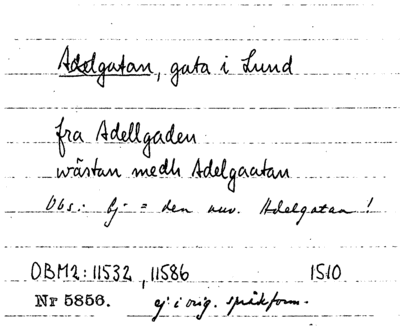 Adelgatan, gata i Lund
fra Adellgaden
wästan medh Adelgaatan
Obs: Ej = den nuv. Adelgatan!
OBM2: 11532, 11586 1510
Nr 5856. ej i orig. språkform.